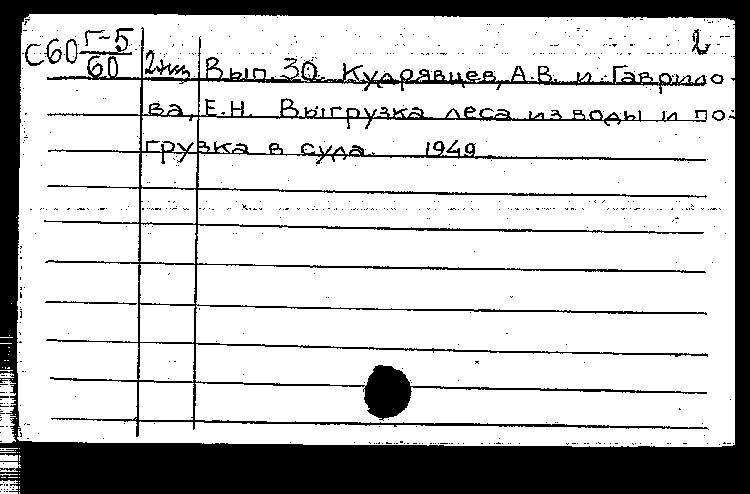 2
С60 Г-5/60 2 экз Вып. 30. Кудрявцев, А.В. и Гаврило-
ва, Е.Н. Выгрузка леса из воды и по-
грузка в суда. 1949.